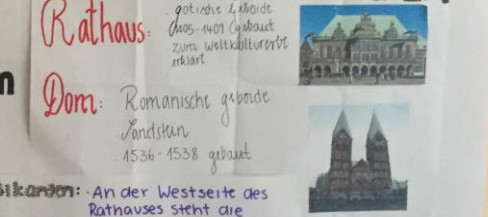 Rathaus:
gotische Geboide
1405-1409 Gebaut
zum Weltkulturerbe
erklärt
Dom: Romanische geboide
Sandstein
1536-1538 gebaut
sikanten: · An der Westseite des
Rathauses steht die